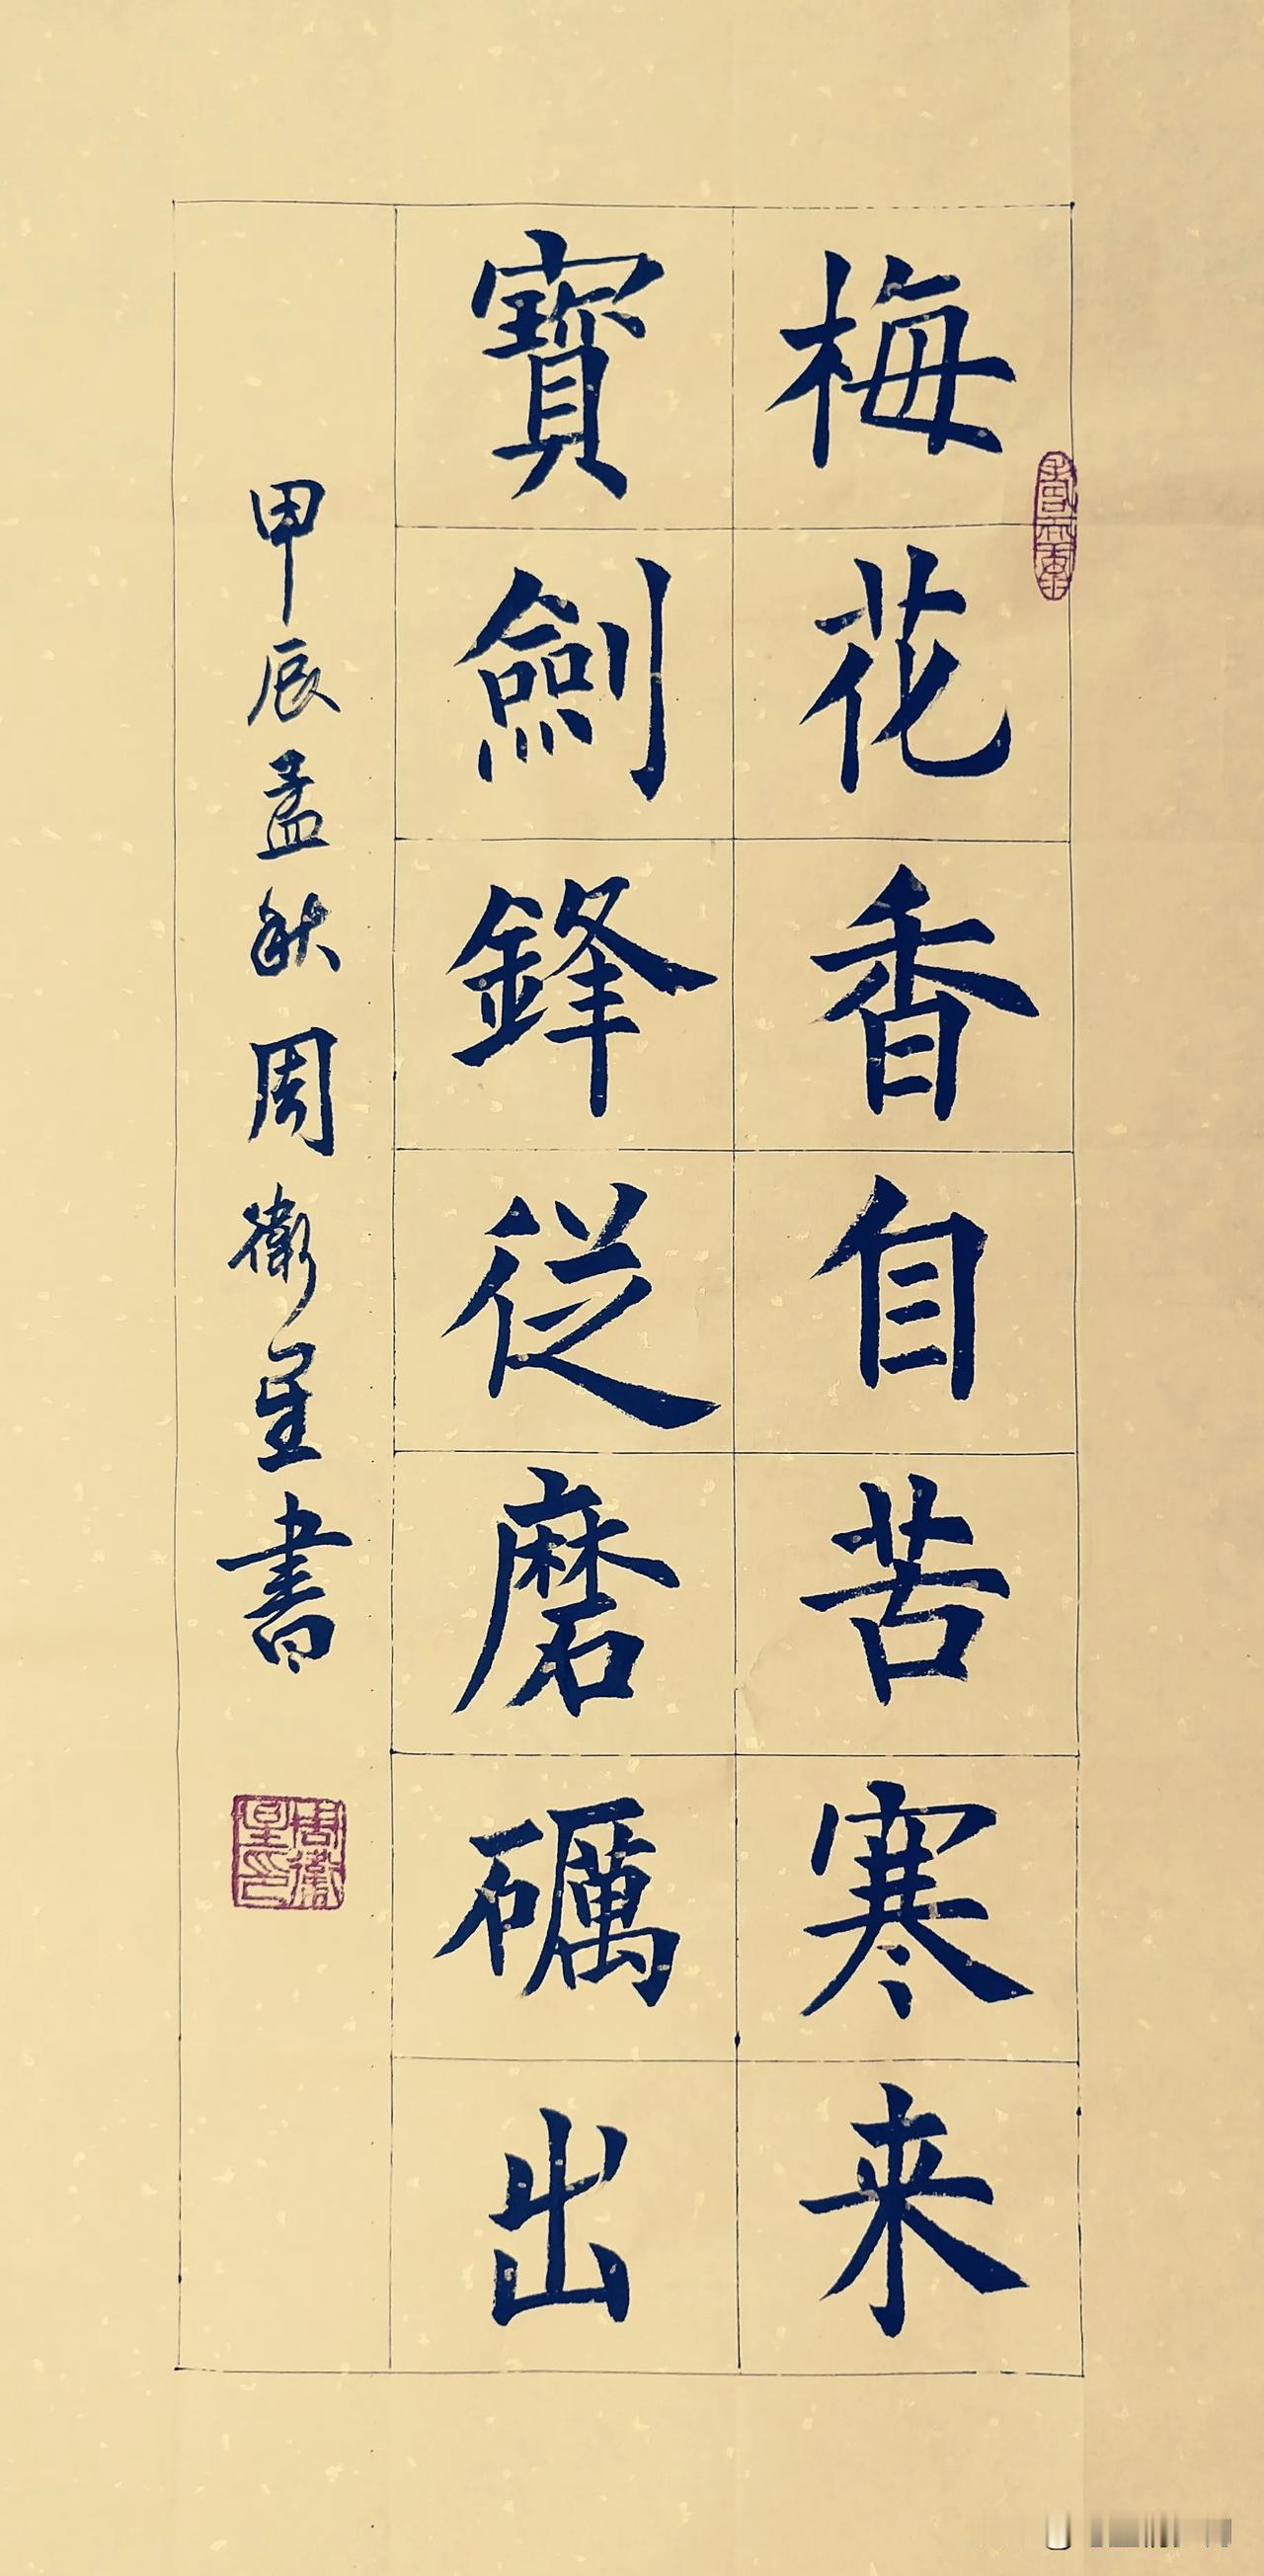 梅花香自苦寒来
寳劍鋒從磨礪出
甲辰孟秋周衛星書
周衛星印